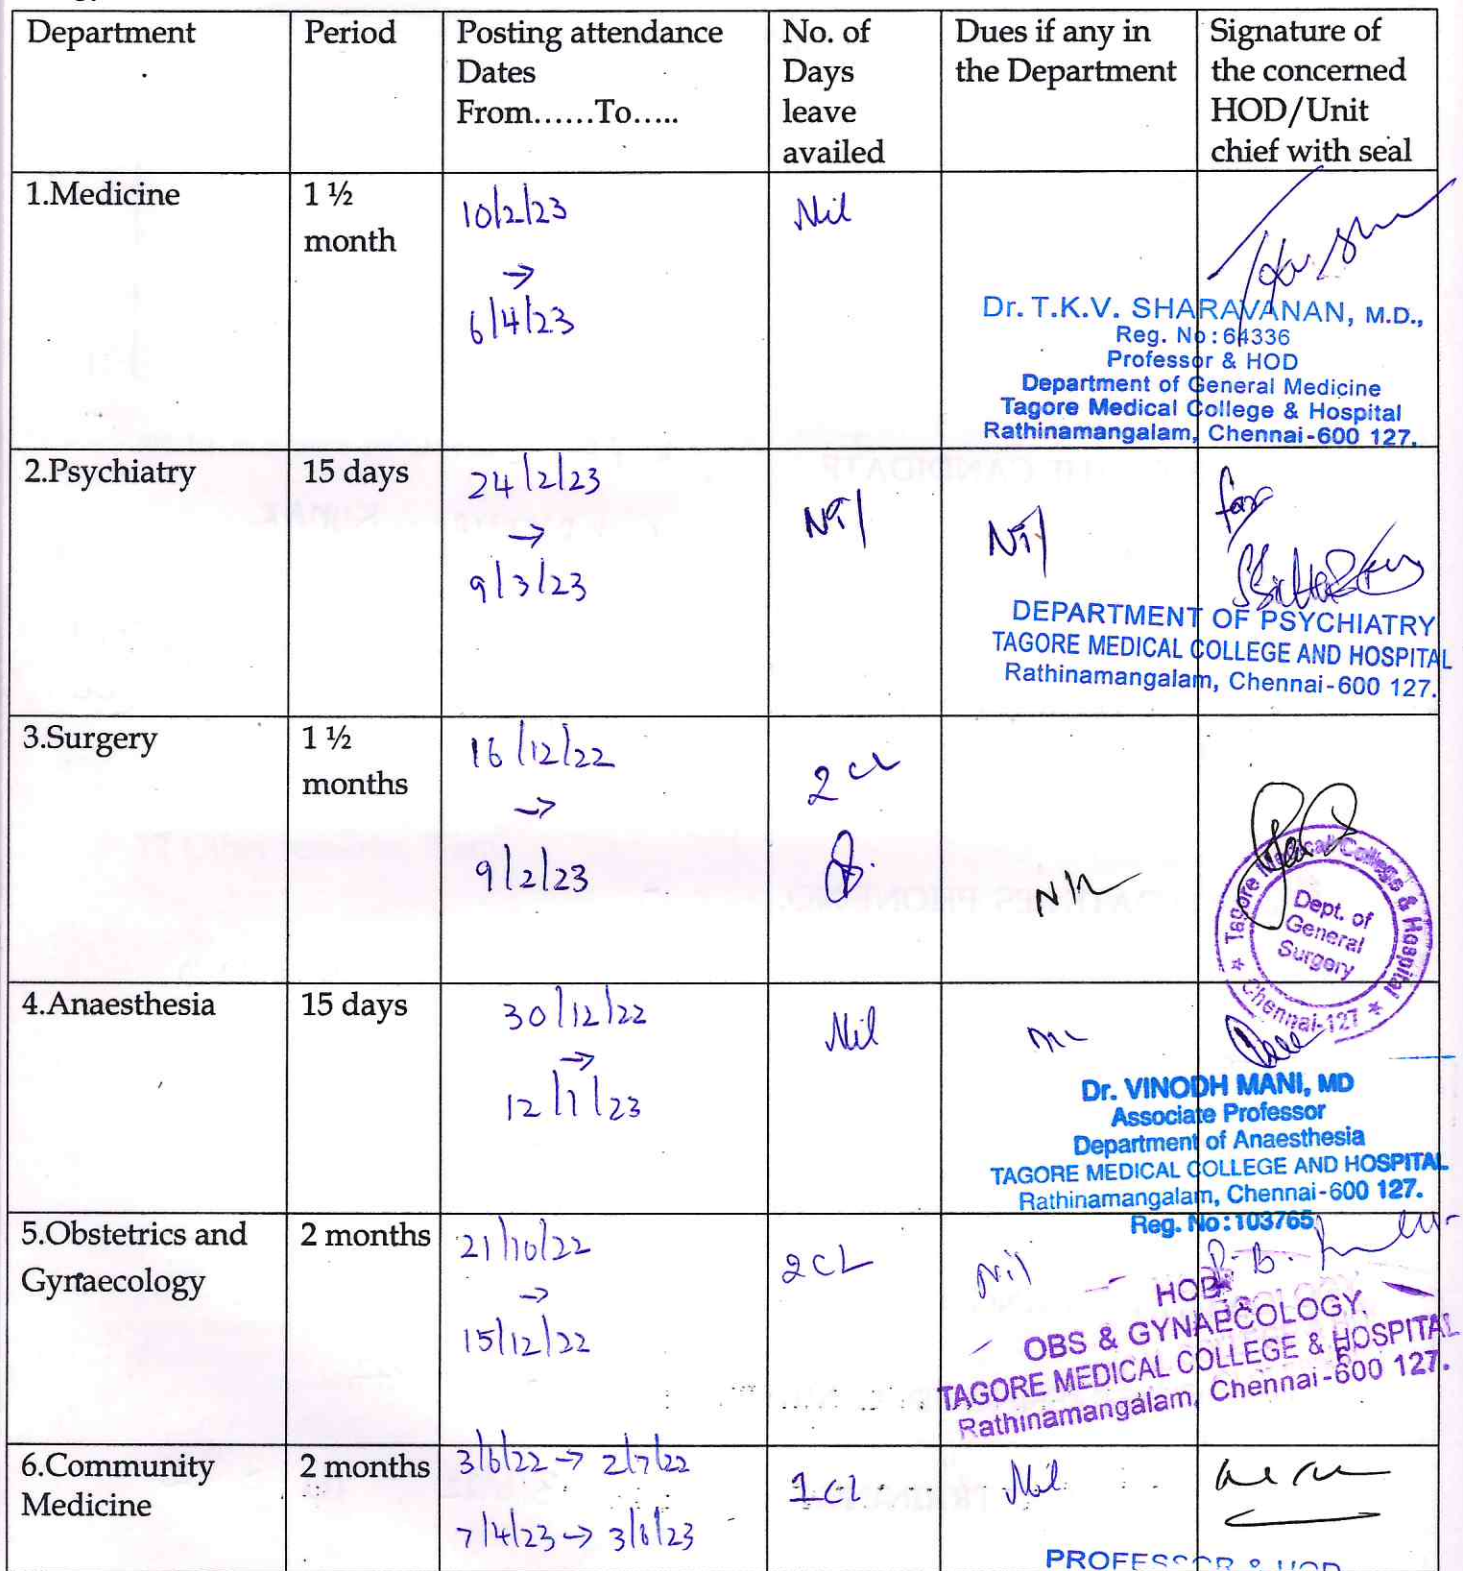 Department
Period
Posting attendance
Dates
From......To.....
No. of
Days
leave
availed
Dues if any in
the Department
Signature of
the concerned
HOD/Unit
chief with seal
1.Medicine
1 ½
month
10/2/23
→
6/4/23
Nil
Dr. T.K.V. SHARAVANAN, M.D.,
Reg. No:64336
Professor & HOD
Department of General Medicine
Tagore Medical College & Hospital
Rathinamangalam, Chennai-600 127.
2.Psychiatry
15 days
24/2/23
→
9/3/23
Nil
Nil
for
DEPARTMENT OF PSYCHIATRY
TAGORE MEDICAL COLLEGE AND HOSPITAL
Rathinamangalam, Chennai-600 127.
3.Surgery
1 ½
months
16/12/22
→
9/2/23
2 CL
Nil
Tagore Medical College & Hospital
Chennai-127
Dept. of
General
Surgery
4.Anaesthesia
15 days
30/12/22
→
12/1/23
Nil
Dr. VINODH MANI, MD
Associate Professor
Department of Anaesthesia
TAGORE MEDICAL COLLEGE AND HOSPITAL
Rathinamangalam, Chennai-600 127.
Reg. No:103765
5.Obstetrics and
Gynaecology
2 months
21/10/22
→
15/12/22
2CL
Nil
HOD
OBS & GYNAECOLOGY.
TAGORE MEDICAL COLLEGE & HOSPITAL
Rathinamangalam, Chennai-600 127.
6.Community
Medicine
2 months
3/6/22 → 2/7/22
7/4/23 → 3/6/23
1 CL
Nil
PROFESSOR & HOD